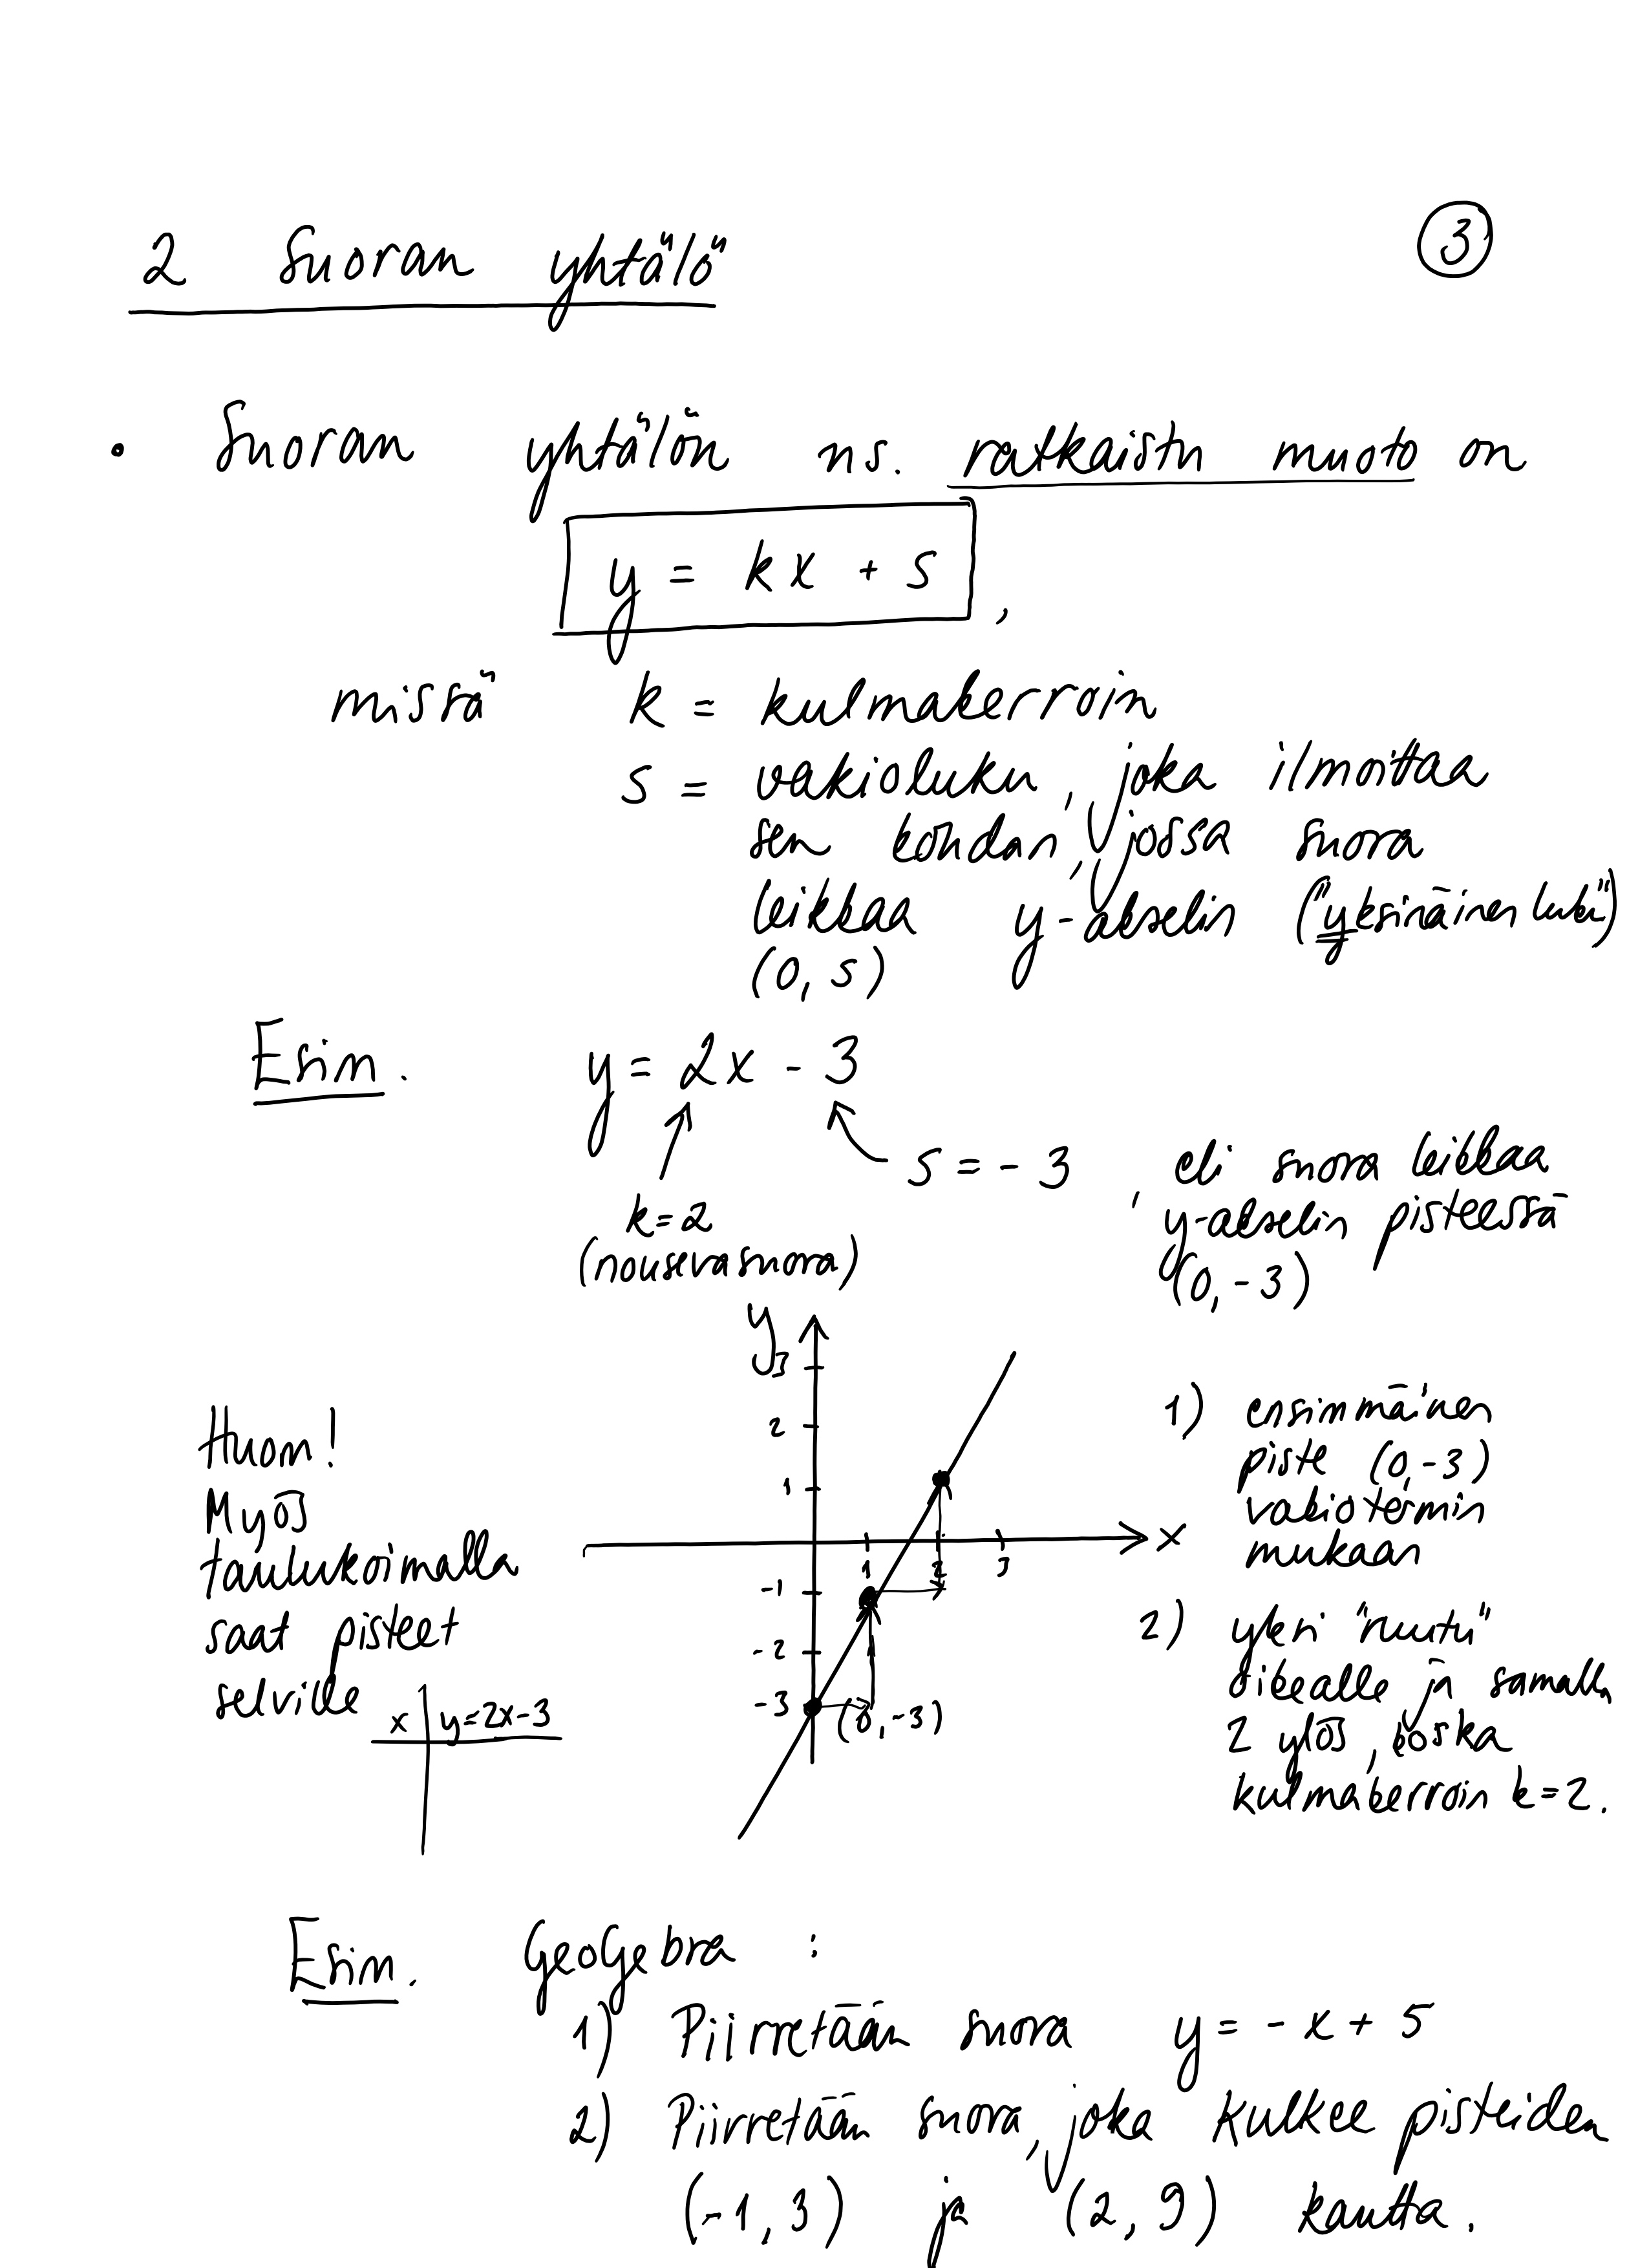 3
2 Suoran yhtälö
• Suoran yhtälön ns. ratkaistu muoto on
y = kx + s ,
missä k = kulmakerroin
s = vakioluku, joka ilmoittaa
sen kohdan, jossa suora
leikkaa y-akselin ("yksinäinen luku")
(0, s)
Esim. y = 2x - 3
s = -3, eli suora leikkaa
y-akselin pisteessä
(0, -3)
k=2
(nouseva suora)
y
3
2
1
x
1 2 3
-1
-2
-3
(0,-3)
Huom!
Myös
taulukoimalla
saat pisteet
selville
x y=2x-3
1) ensimmäinen
piste (0,-3)
vakiotermin
mukaan
2) yksi "ruutu"
oikealle ja samalla
2 ylös, koska
kulmakerroin k=2.
Esim. GeoGebra :
1) Piirretään suora y = -x + 5
2) Piirretään suora, joka kulkee pisteiden
(-1, 3) ja (2, 9) kautta.